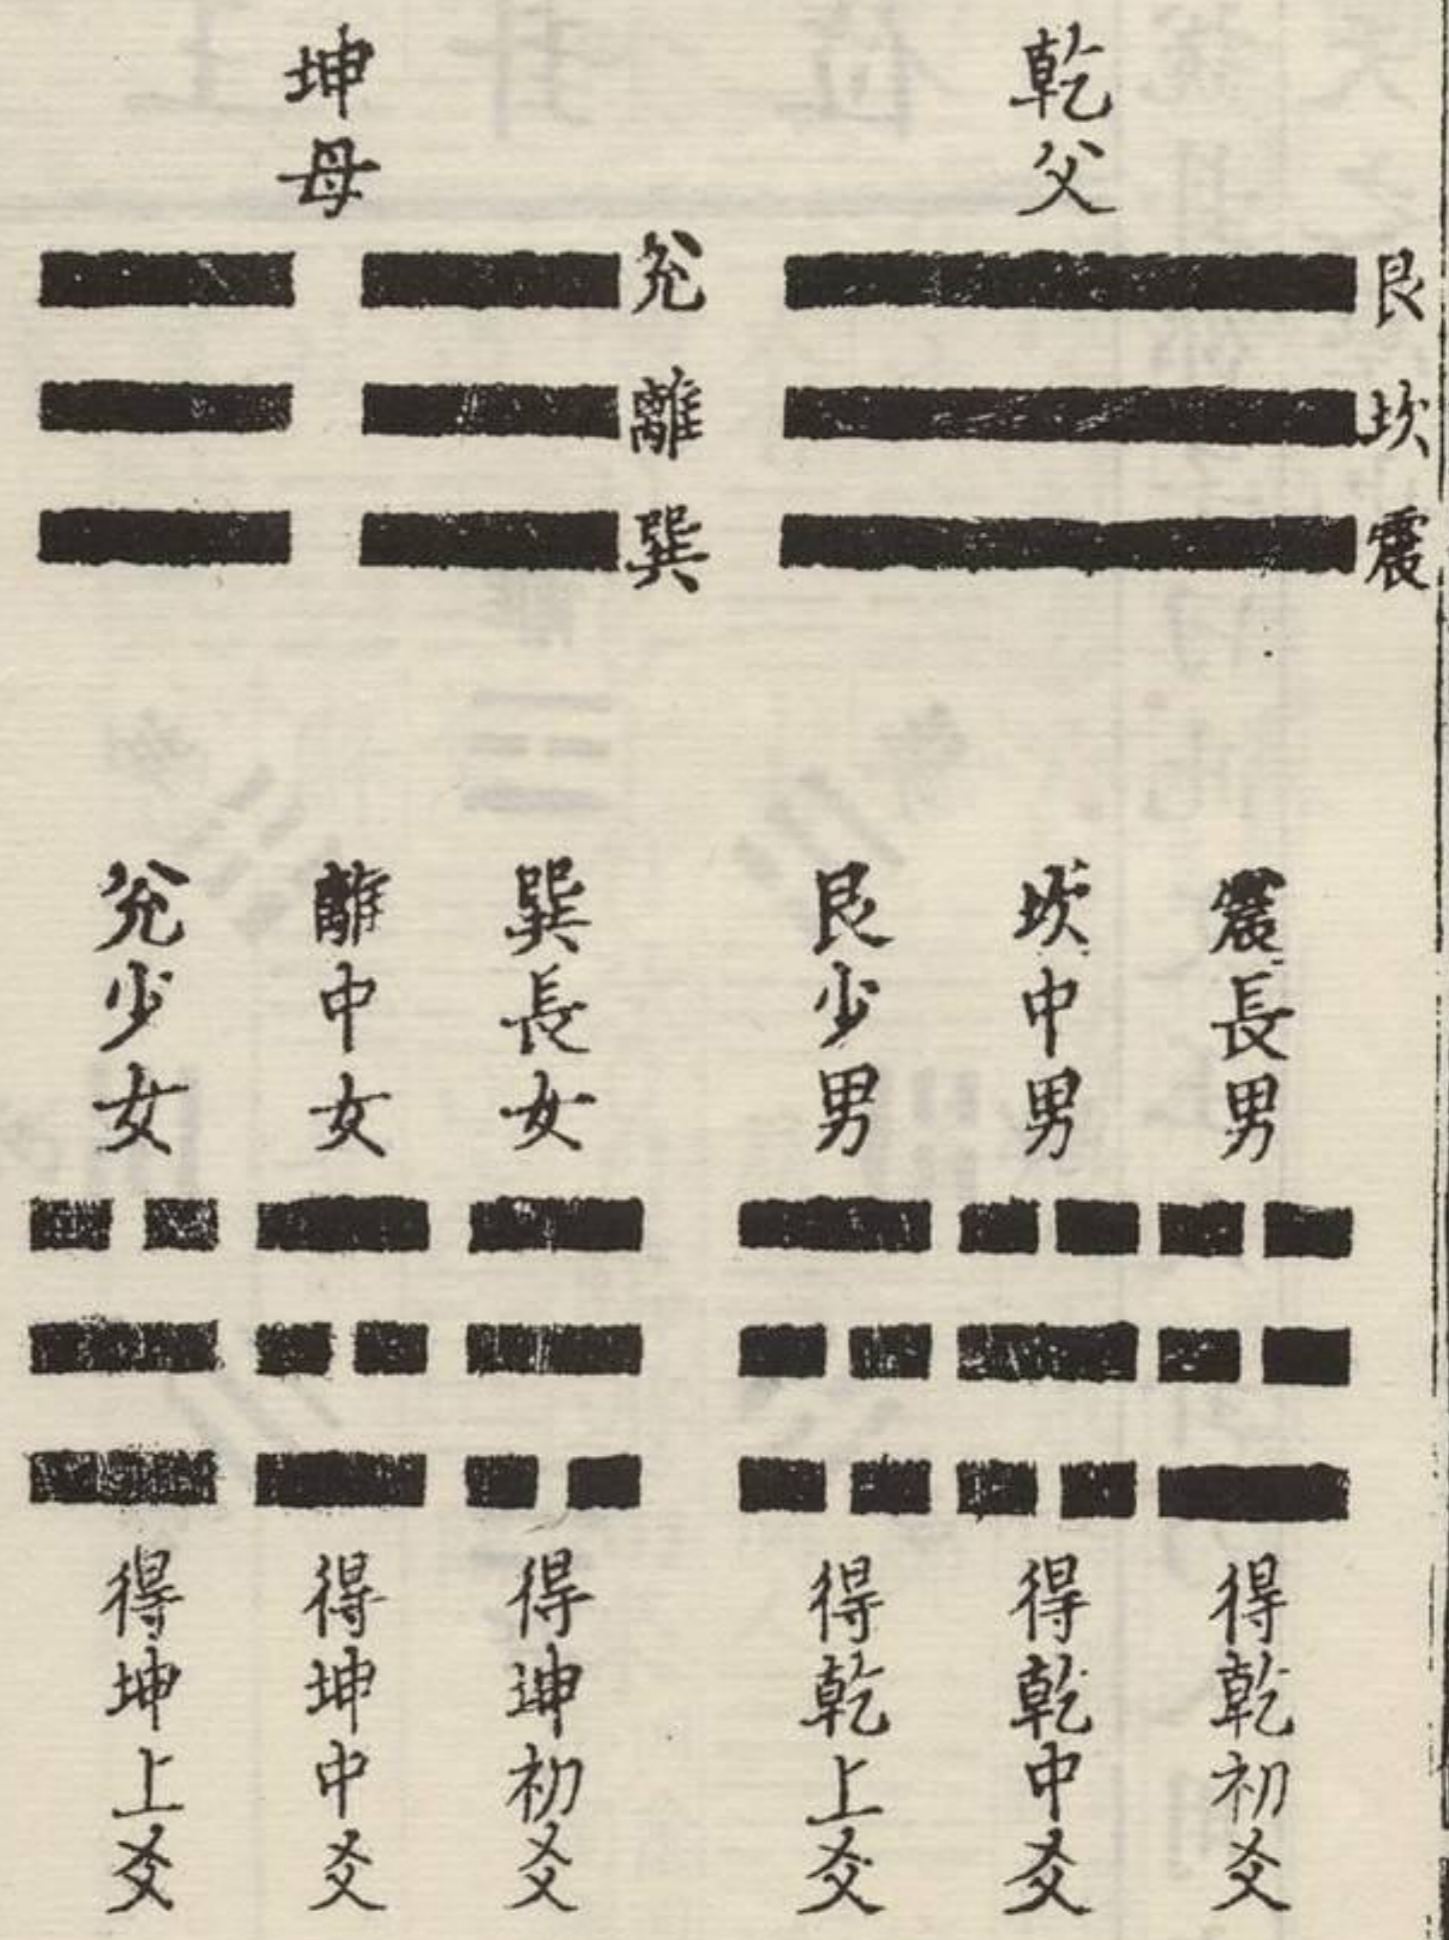 乾父
艮
坎
震
坤母
兊
離
巽
震長男
得乾初爻
坎中男
得乾中爻
艮少男
得乾上爻
巽長女
得坤初爻
離中女
得坤中爻
兊少女
得坤上爻